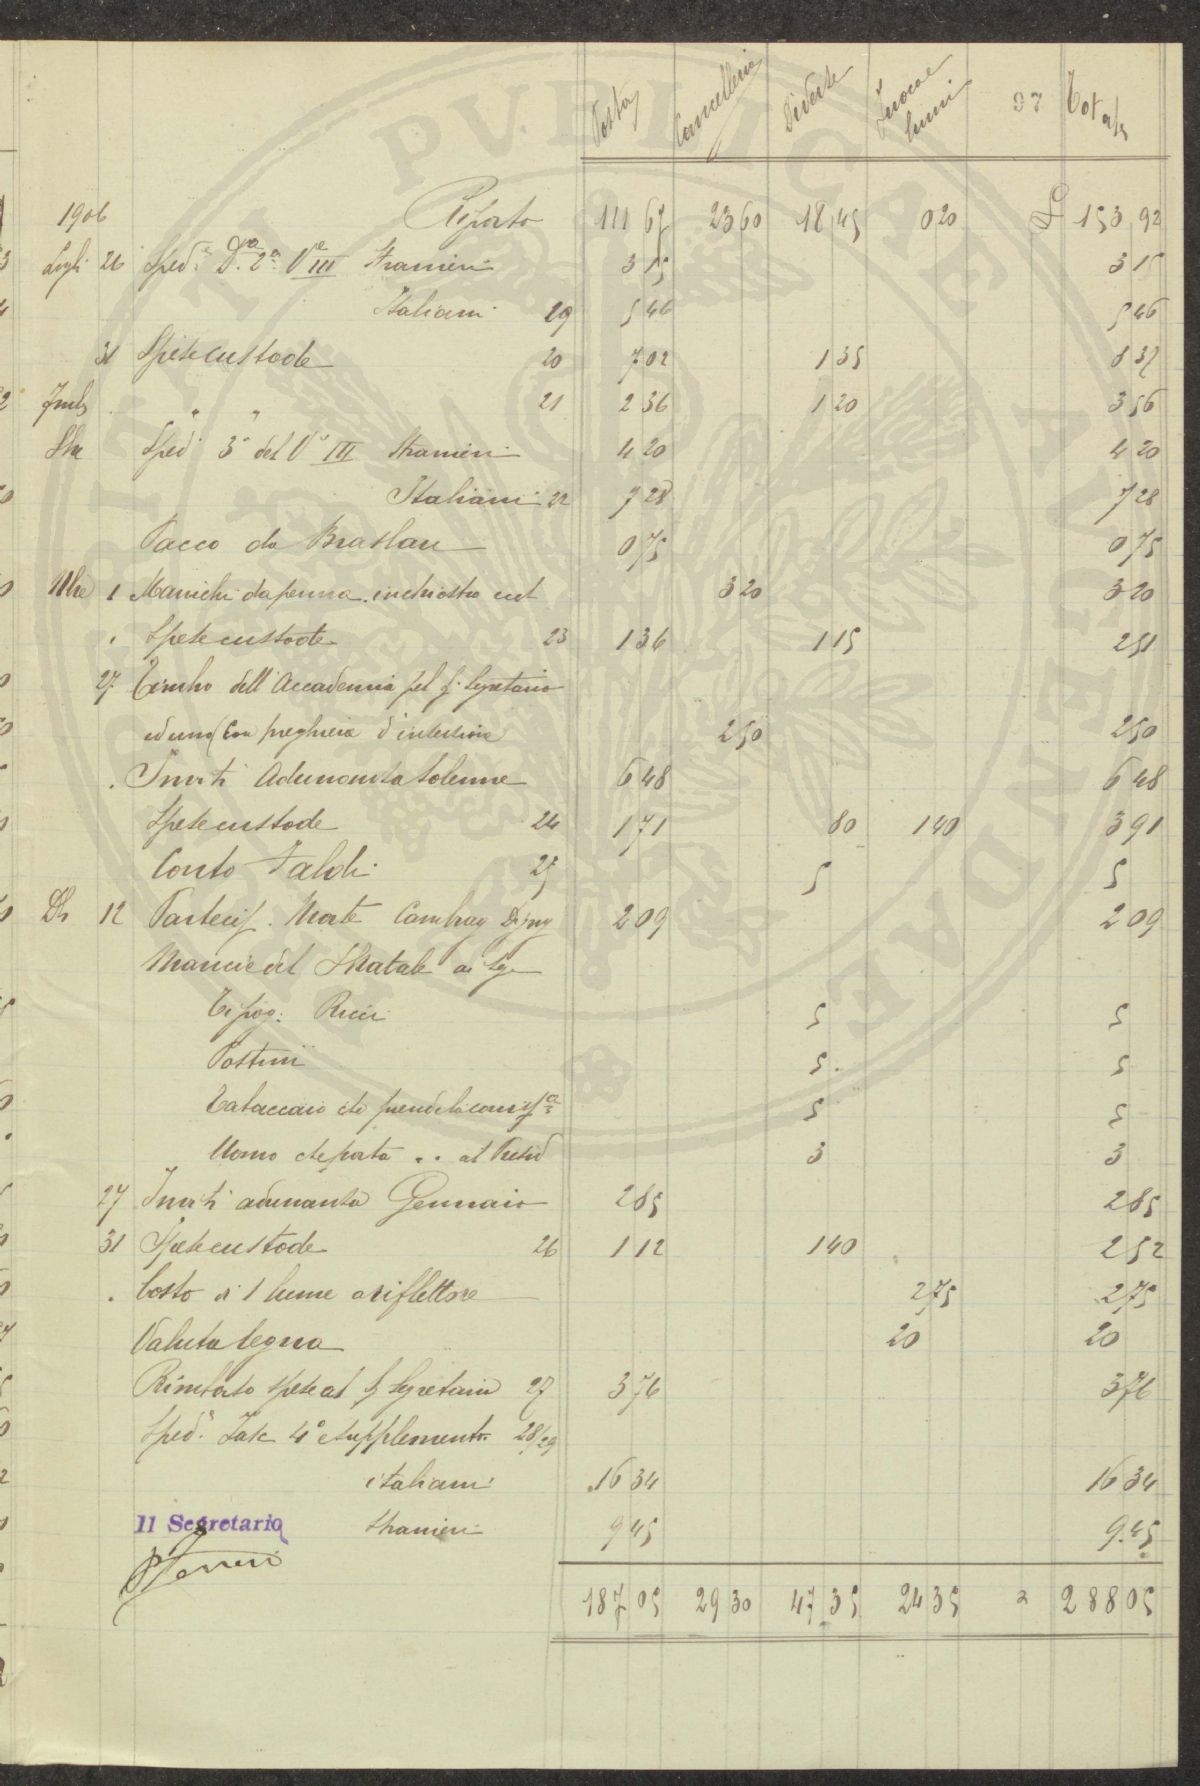 Posta Cancelleria Diverse Fuoco e lumi 97 Totale
1906 Riporto 111 67 23 60 18 45 0 20 £ 153,92
Lugli 26 Sped.e D.a 2.a Ve III Stranieri 3 15 3 15
Italiani 29 5 46 5 46
31 Spese custode 20 7 02 1 35 8 37
" " 21 2 36 1 20 3 56
Sped 3° del V° III Stranieri 4 20 4 20
Italiani 22 7 28 7 28
Pacco da Braslau 0 75 0 75
1 Manichi da penna. inchiostro ect 3 20 3 20
Spese custode 23 1 36 1 15 2 51
27 Timbro dell'Accademia pel f. Segretario
ed uno (con preghiera d'inserzione 2 50 2 50
. Inviti Adunanza solenne 6 48 6 48
Spese custode 24 1 71 80 1 40 3 91
Conto Faldi 25 5 5
12 Partecip. Morte Cambray Digny 2 09 2 09
Mancie del S Natale ai seg
Tipog: Ricci 5 5
Postini 5. 5
5 5
Uomo 3 3
27 Inviti adunanza Gennaio 2 85 2 85
31 Spese custode 26 1 12 1 40 2 52
. Costo di 1 lume a riflettore 2 75 2 75
Valuta legna 20 20
Rimborso spese al f Segretario 27 3 76 3 76
Sped.e Fasc 4° e supplemento 28/29
italiani 16 34 16 34
Il Segretario Stranieri 9 45 9.45
187 05 29 30 47 35 24 35 288 05